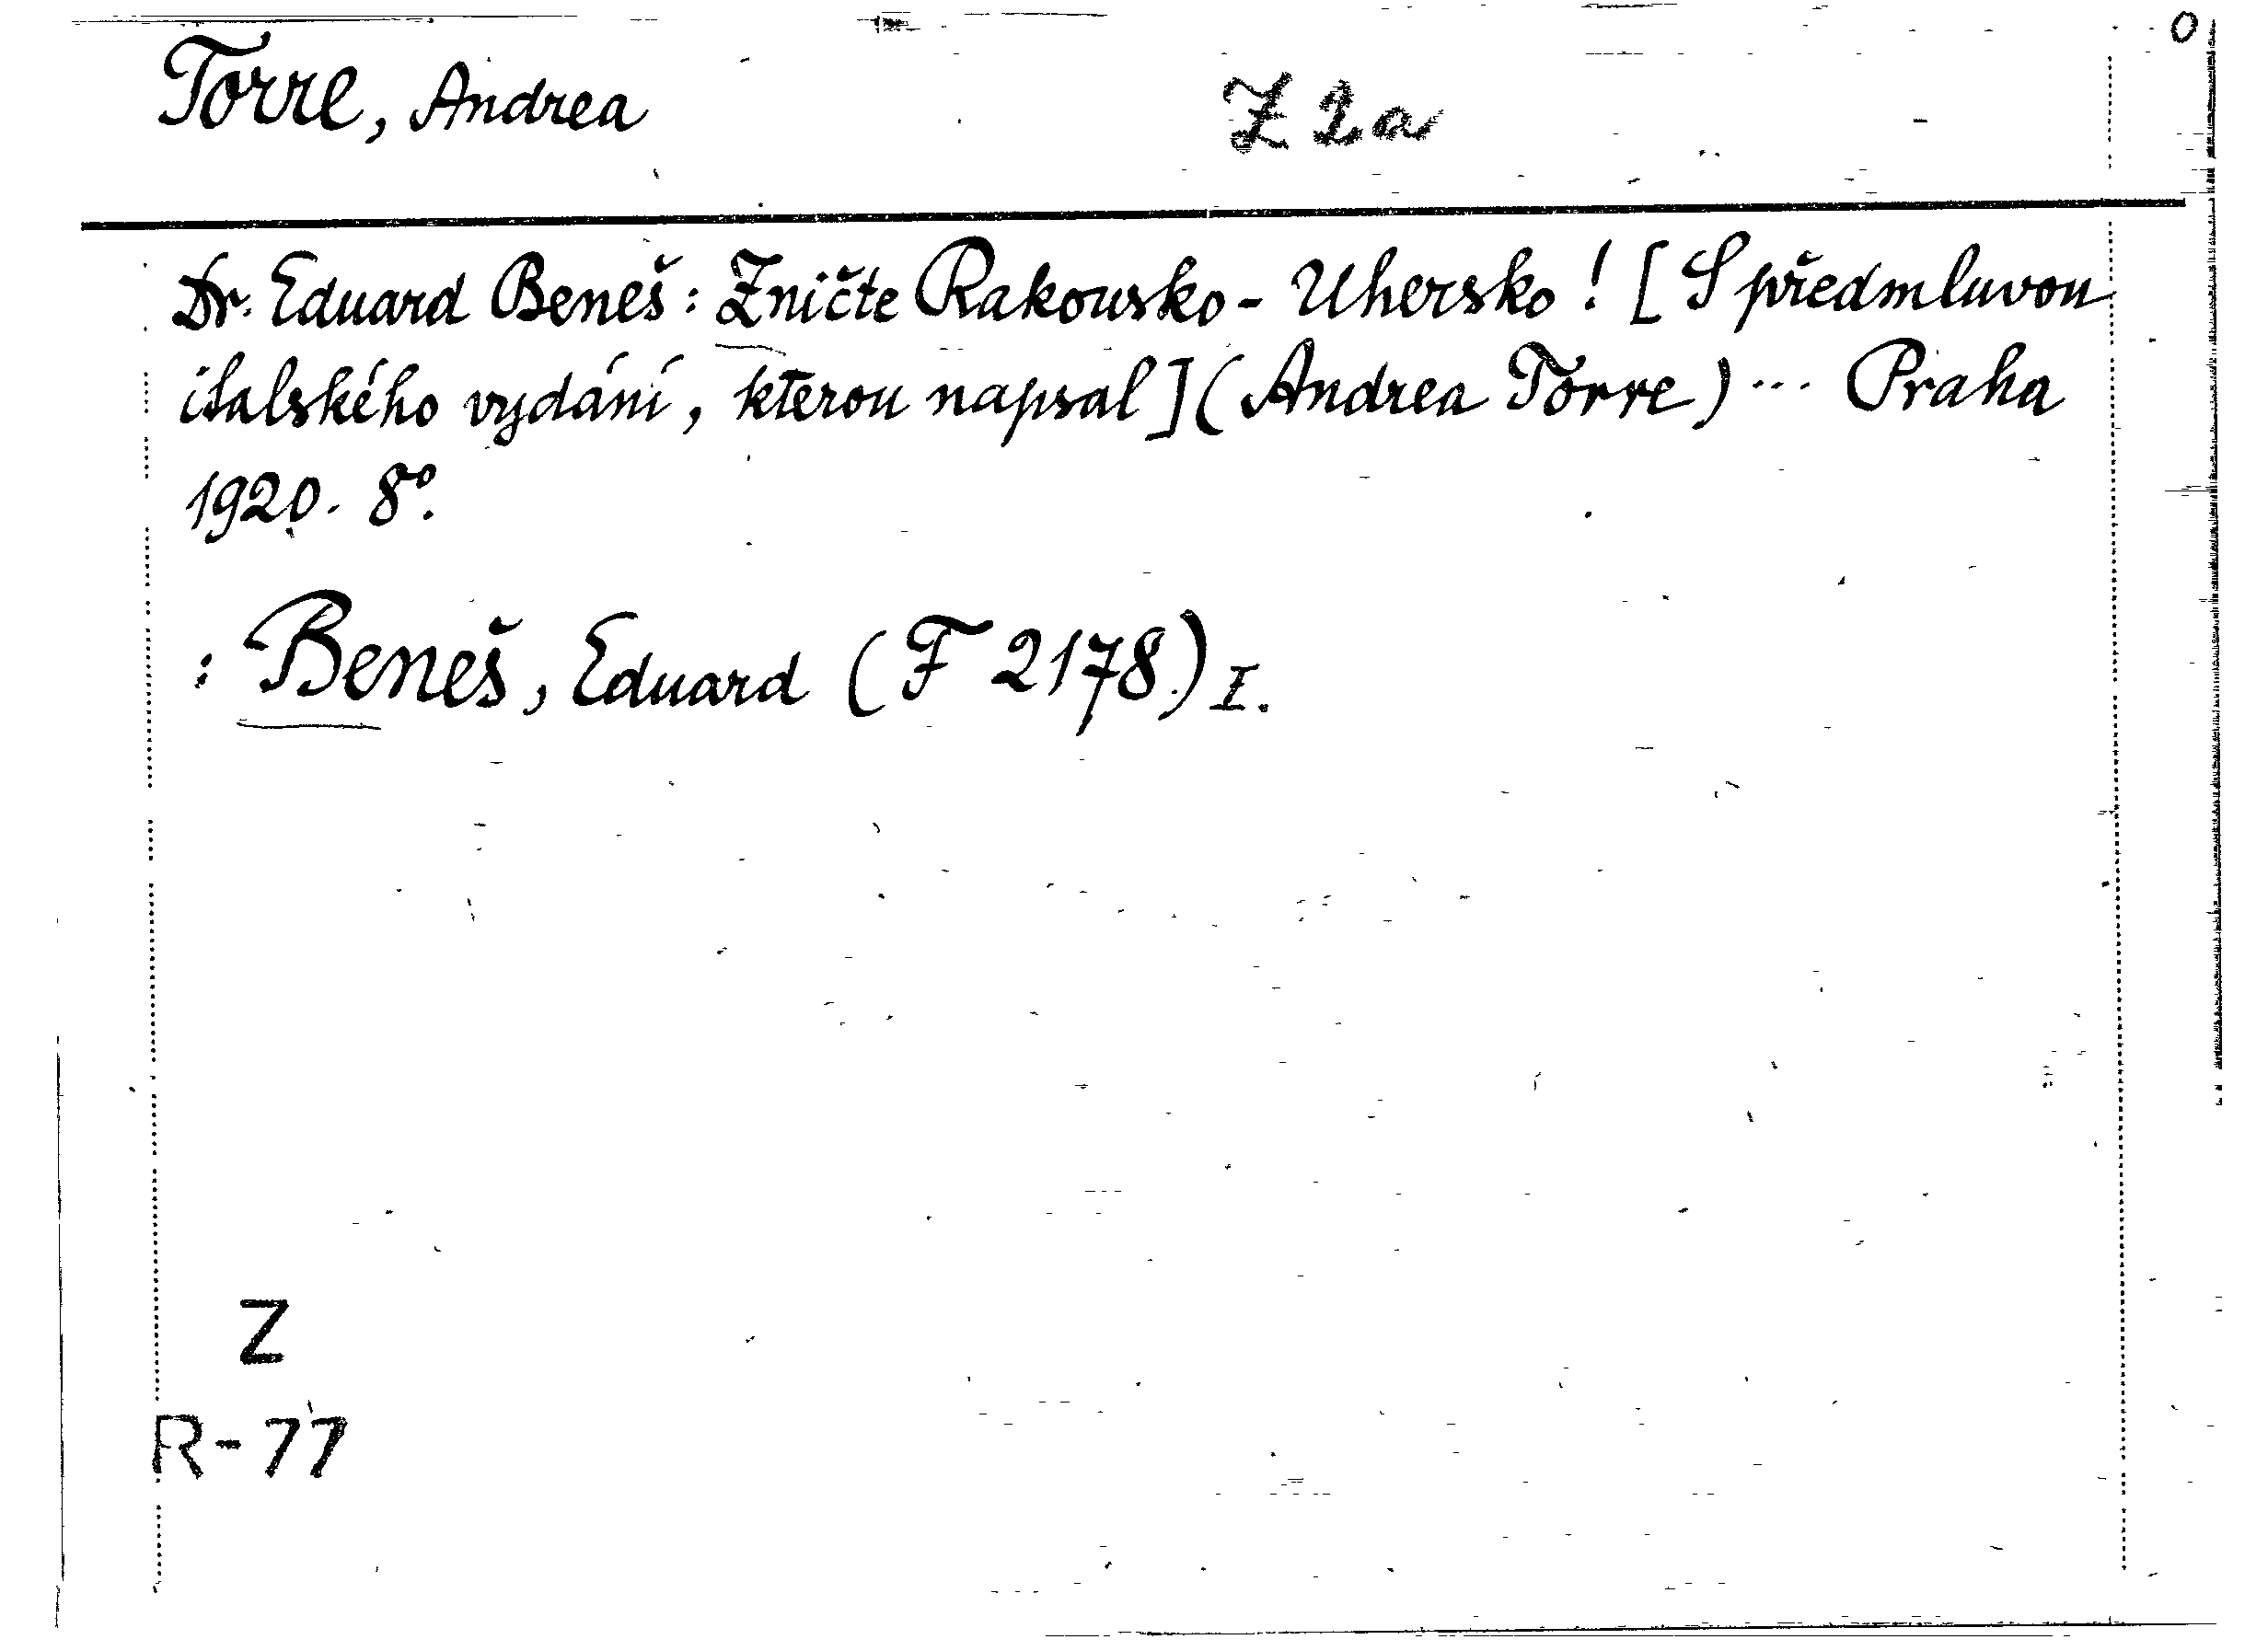 O
Torre, Andrea Z 2a
Dr. Eduard Beneš: Zničte Rakousko-Uhersko! [S předmluvou
italského vydání, kterou napsal] (Andrea Torre) ... Praha
1920. 8°.
: Beneš, Eduard (F 2178.) I.
Z
R-77